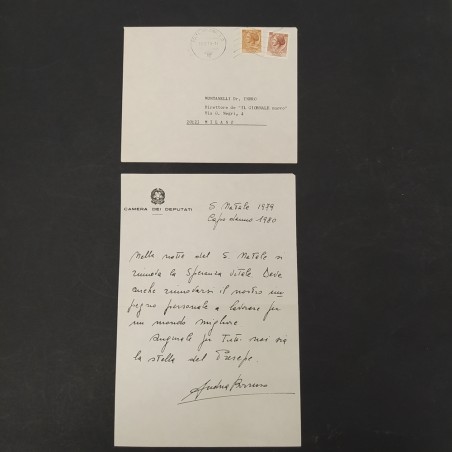 MONTANELLI Dr. INDRO
Direttore de "IL GIORNALE nuovo"
Via G. Negri, 4
MILANO
CAMERA DEI DEPUTATI
S. Natale 1979
Capo d'anno 1980
Nella notte del S. Natale si
rinnova la Speranza vitale. Deve
anche rinnovarsi il nostro im=
pegno personale a lavorare per
un mondo migliore
Auguriale per Tutti noi sia
la stella del Presepe